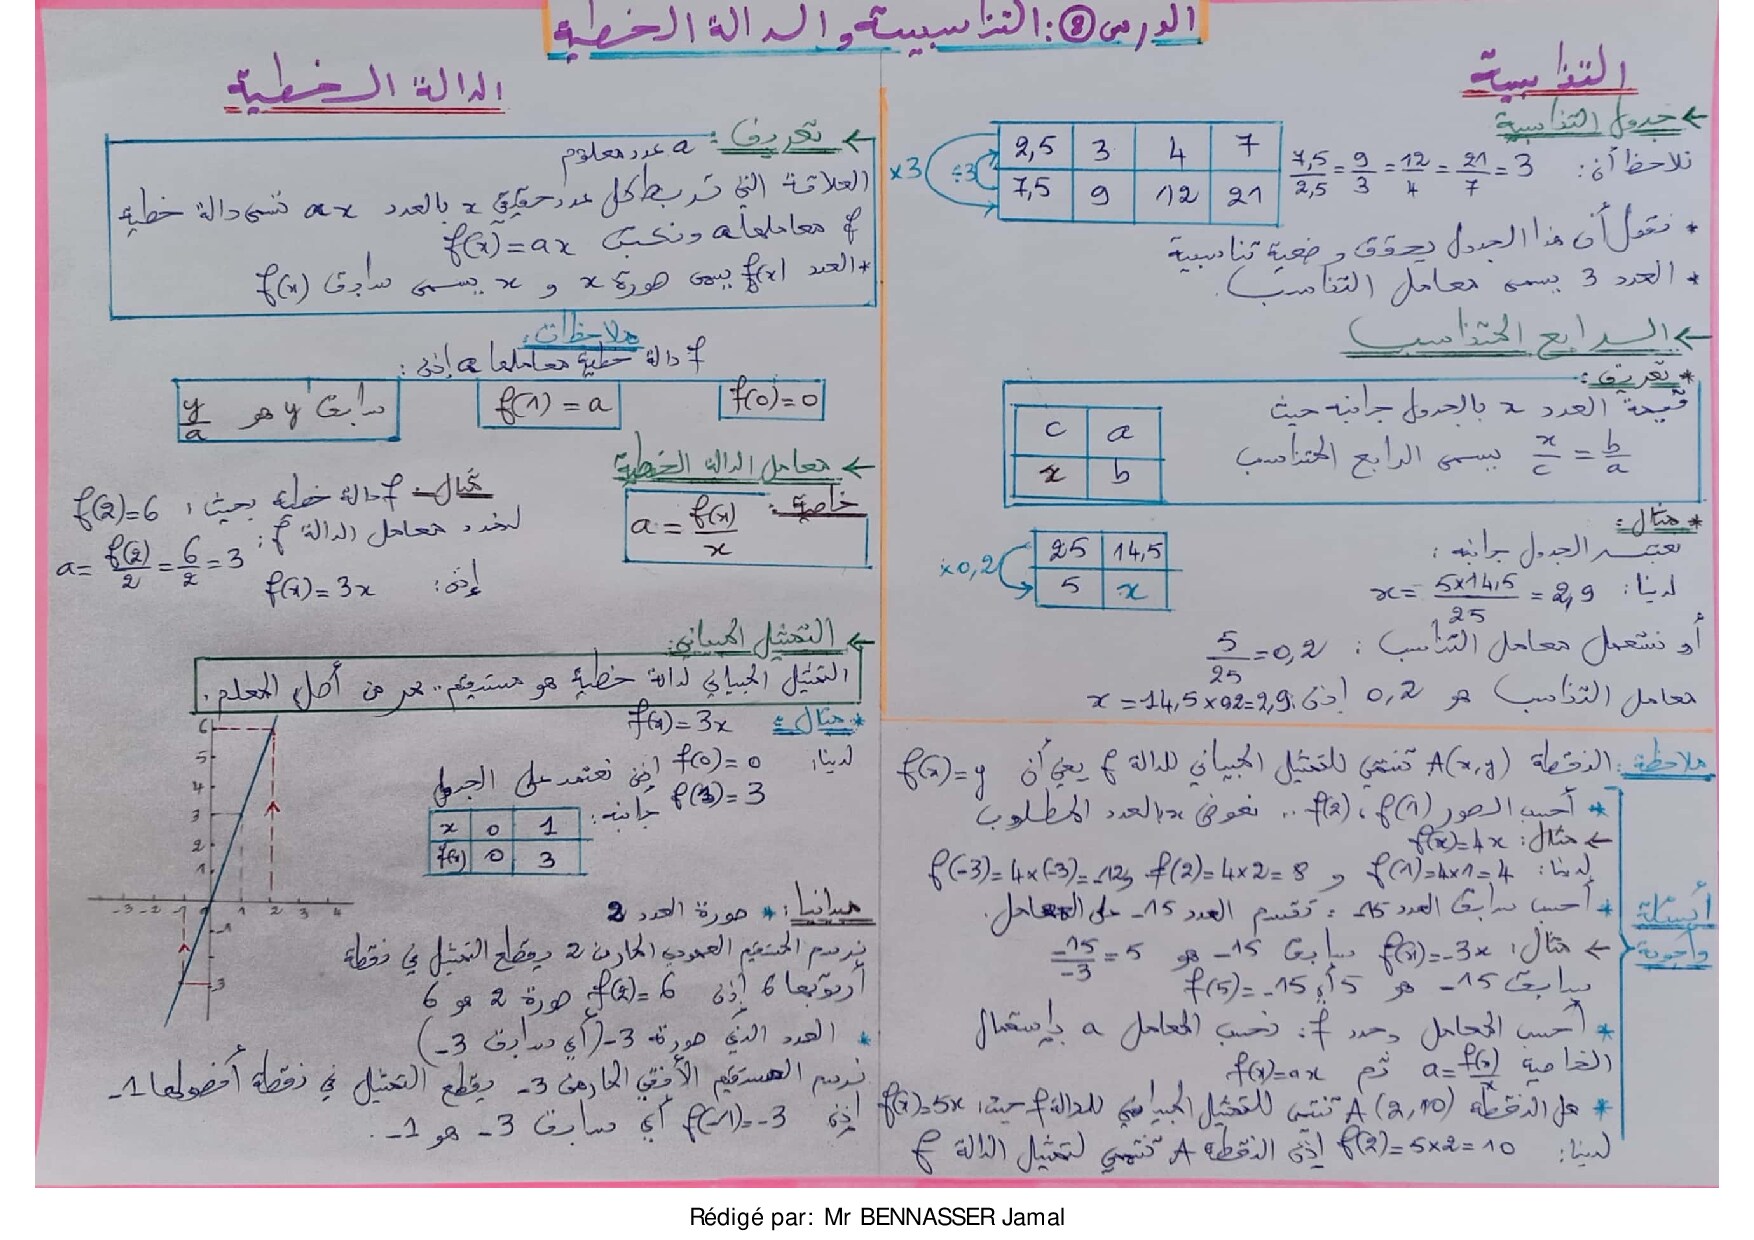 الدرس 8: التناسبية والدالة الخطية
التناسبية
← جدول التناسبية
2,5 3 4 7
7,5 9 12 21
×3 ÷3
نلاحظ أن: 7,5/2,5 = 9/3 = 12/4 = 21/7 = 3
* نقول أن هذا الجدول يحقق وضعية تناسبية
* العدد 3 يسمى معامل التناسب.
← الرابع المتناسب
* تعريف:
قيمة العدد x بالجدول جانبه حيث
x/c = b/a يسمى الرابع المتناسب
c a
x b
* مثال:
نعتبر الجدول جانبه:
25 14,5
5 x
×0,2
لدينا: x = 5×14,5/25 = 2,9
أو نستعمل معامل التناسب: 5/25 = 0,2
معامل التناسب هو 0,2 إذن: x = 14,5×0,2 = 2,9
ملاحظة: النقطة A(x,y) تنتمي للتمثيل المبياني للدالة f يعني أن f(x)=y
أسئلة وأجوبة
* أحسب الصور f(1)، f(2).. نعوض x بالعدد المطلوب
← مثال: f(x)=4x
لدينا: f(1)=4×1=4 و f(2)=4×2=8 و f(-3)=4×(-3)=-12
* أحسب سابق العدد -15: نقسم العدد -15 على المعامل.
← مثال: f(x)=-3x سابق -15 هو -15/-3 = 5
سابق -15 هو 5 أي f(5)=-15
* أحسب المعامل وحدد f: نحسب المعامل a بإستعمال
الخاصية a=f(x)/x ثم f(x)=ax
* هل النقطة A(2,10) تنتمي للتمثيل المبياني للدالة f حيث: f(x)=5x
لدينا: f(2)=5×2=10 إذن النقطة A تنتمي لتمثيل الدالة f
الدالة الخطية
← تعريف:
a عدد معلوم
العلاقة التي تربط كل عدد حقيقي x بالعدد ax تسمى دالة خطية
f معاملها a ونكتب f(x)=ax
* العدد f(x) يسمى صورة x و x يسمى سابق f(x)
ملاحظات:
f دالة خطية معاملها a إذن:
f(0)=0
f(1)=a
سابق y هو y/a
← معامل الدالة الخطية
خاصية:
a = f(x)/x
مثال: f دالة خطية بحيث: f(2)=6
لنحدد معامل الدالة f: a = f(2)/2 = 6/2 = 3
إذن: f(x)=3x
← التمثيل المبياني:
التمثيل المبياني لدالة خطية هو مستقيم.. يمر من أصل المعلم.
* مثال: f(x)=3x
لدينا: f(0)=0
f(1)=3
إذن نعتمد على الجدول جانبه:
x 0 1
f(x) 0 3
6
5
4
3
2
1
-3 -2 -1 1 2 3 4
-1
-3
مبيانيا: * صورة العدد 2
نرسم المستقيم العمودي المار من 2 يقطع التمثيل في نقطة
أرتوبها 6 إذن f(2)=6 صورة 2 هو 6
* العدد الذي صورة -3 (أي سابق -3)
نرسم المستقيم الأفقي المار من -3 يقطع التمثيل في نقطة أفصولها -1
إذن f(-1)=-3 أي سابق -3 هو -1.
Rédigé par: Mr BENNASSER Jamal